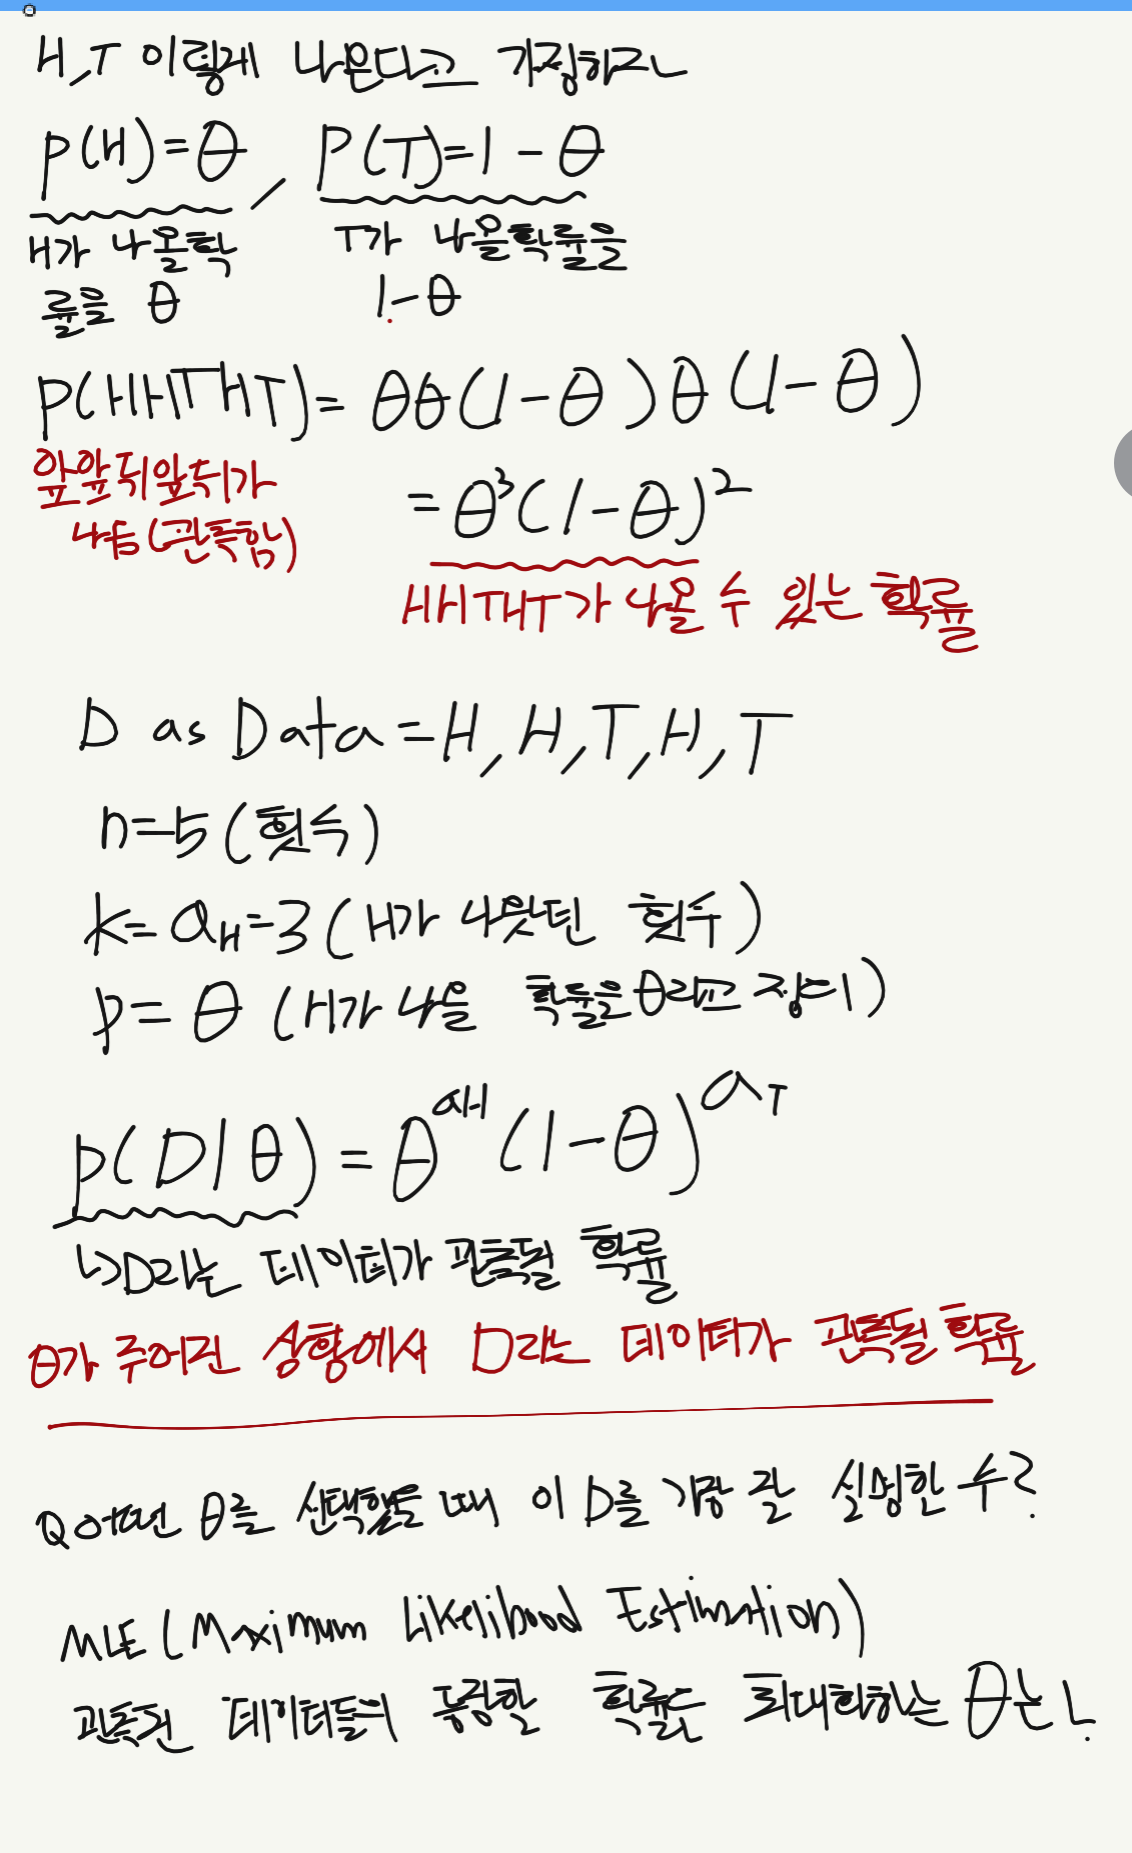 H,T 이렇게 나온다고 가정하고
P(H)=θ, P(T)=1-θ
H가 나올확 T가 나올확률을
률을 θ 1-θ
P(HHTHT)=θθ(1-θ)θ(1-θ)
앞앞뒤앞뒤가
=θ³(1-θ)²
나옴(관측함)
HHTHT가 나올 수 있는 확률
D as Data=H,H,T,H,T
n=5(횟수)
k=a_H=3(H가 나왓던 횟수)
p=θ(H가 나올 확률을θ라고 정의)
P(D|θ)=θ^aH(1-θ)^aT
↳D라는 데이터가 관측될 확률
θ가 주어진 상황에서 D라는 데이터가 관측될 확률
Q어떤 θ를 선택했을 때 이 D를 가장 잘 설명할 수?
MLE(Maximum Likelihood Estimation)
관측된 데이터들의 등장할 확률을 최대화하는 θ는?